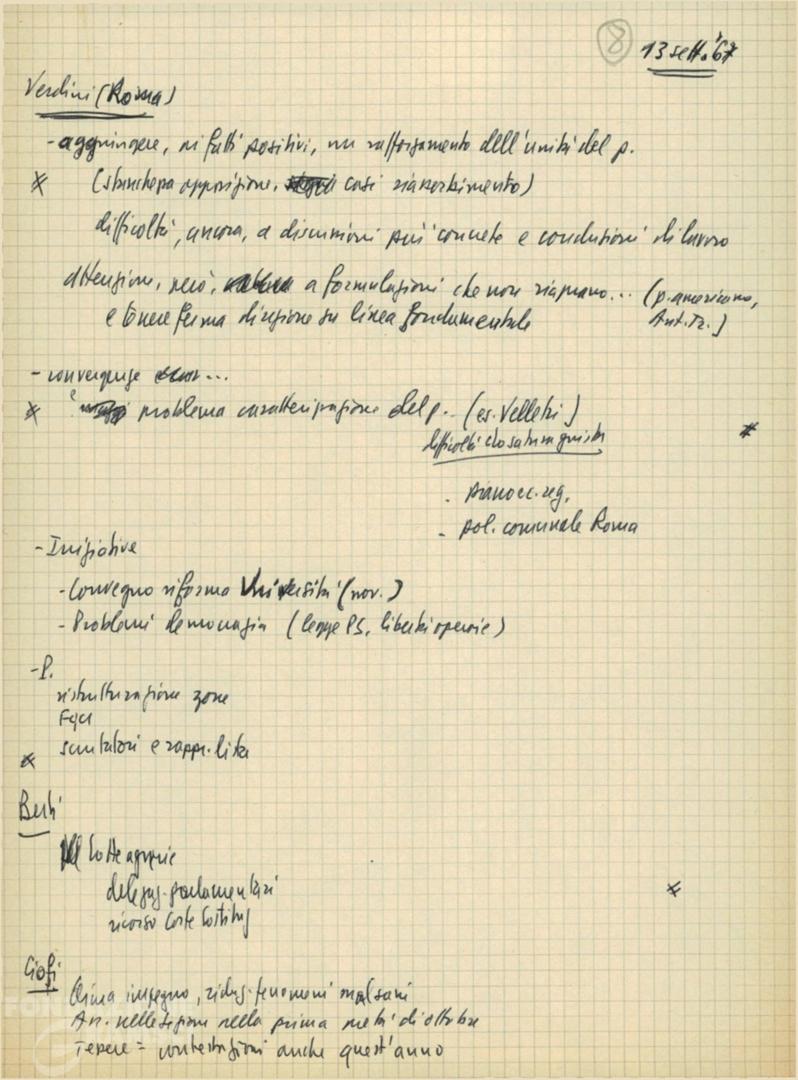 8
13 sett. '67
Verdini (Roma)
- aggiungere, ai fatti positivi, un rafforzamento dell'unità del p.
(stanchezza opposizione, così riassorbimento)
difficoltà, ancora, a discussioni più concrete e conclusioni di lavoro
attenzione, però, a formulazioni che non riaprano... (p. americano,
e tenere ferma direzione su linea fondamentale Ant. Tr.)
- convergenze ...
è problema caratterizzazione del p. .. (es. Velletri)
difficoltà
- piano ec. reg.
- pol. comunale Roma
- Iniziative
- Convegno riforma Università (nov.)
- Problemi democrazia (legge PS, libertà operaie)
- P.
ristrutturazione zone
FGCI
scrutatori e rappr. lista
Berti
lotte agrarie
delegaz. parlamentari
ricorso Corte Costituz
Ciofi
Clima impegno, riduz. fenomeni malsani
An. nelle sezioni nella prima metà di ottobre
Tessere = contestazioni anche quest'anno